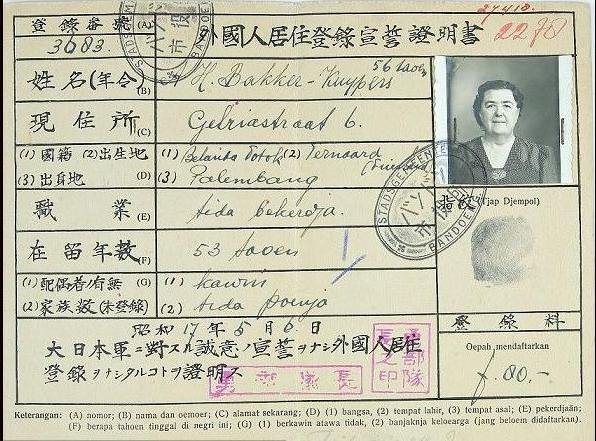 登錄番號 (A)
3683.
外國人居住登錄宣誓證明書
27418.
2270
姓名(年令) (B)
H. Bakker-Kuypers
56 taoen
現住所 (C)
Getriastraat 6.
(1) 國籍 (2) 出生地
(3) 出身地 (D)
(1) Belanda Totok (2) Ternaard
(Friesland)
(3) Palembang
職業 (E)
tida bekerdja.
在留年數 (F)
53 taoen
(1) 配偶者有無 (G)
(2) 家族數(未登錄)
(1) kawin
(2) tida poenja
STADSGEMEENTE BANDOENG
バンドン市役所
指紋 (Tjap Djempol)
登錄料
Oepah mendaftarkan
f. 80.-
昭和17年5月6日
大日本軍ニ對スル誠意ノ宣誓ヲナシ外國人居住
登錄ヲナシタルコトヲ證明ス
部隊長之印
Keterangan: (A) nomor; (B) nama dan oemoer; (C) alamat sekarang; (D) (1) bangsa, (2) tempat lahir, (3) tempat asal; (E) pekerdjaän;
(F) berapa tahoen tinggal di negri ini; (G) (1) berkawin atawa tidak, (2) banjaknja keloearga (jang beloem didaftarkan).